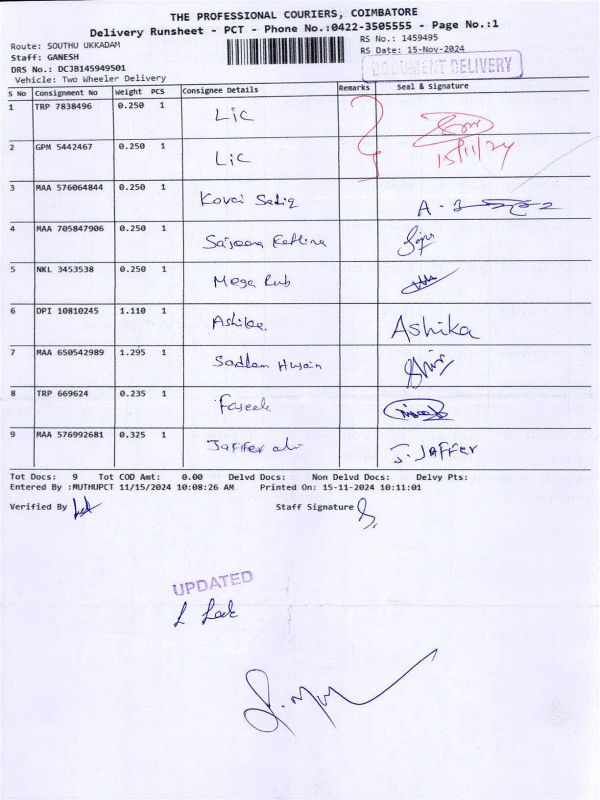 THE PROFESSIONAL COURIERS, COIMBATORE
Delivery Runsheet - PCT - Phone No.:0422-3505555 - Page No.:1
Route: SOUTHU UKKADAM
RS No.: 1459495
Staff: GANESH
RS Date: 15-Nov-2024
DRS No.: DCJB145949501
DOCUMENT DELIVERY
Vehicle: Two Wheeler Delivery
S No Consignment No Weight PCS Consignee Details Remarks Seal & Signature
1 TRP 7838496 0.250 1 Lic
2 GPM 5442467 0.250 1 Lic 15/11/24
3 MAA 576064844 0.250 1 Kovai Sadiq A.
4 MAA 705847906 0.250 1
5 NKL 3453538 0.250 1 Mega Rub
6 DPI 10810245 1.110 1 Ashika Ashika
7 MAA 650542989 1.295 1 Saddam Husain
8 TRP 669624 0.235 1 Faseek
9 MAA 576992681 0.325 1 Jaffer ali J. JAFFER
Tot Docs: 9 Tot COD Amt: 0.00 Delvd Docs: Non Delvd Docs: Delvy Pts:
Entered By :MUTHUPCT 11/15/2024 10:08:26 AM Printed On: 15-11-2024 10:11:01
Verified By Staff Signature
UPDATED